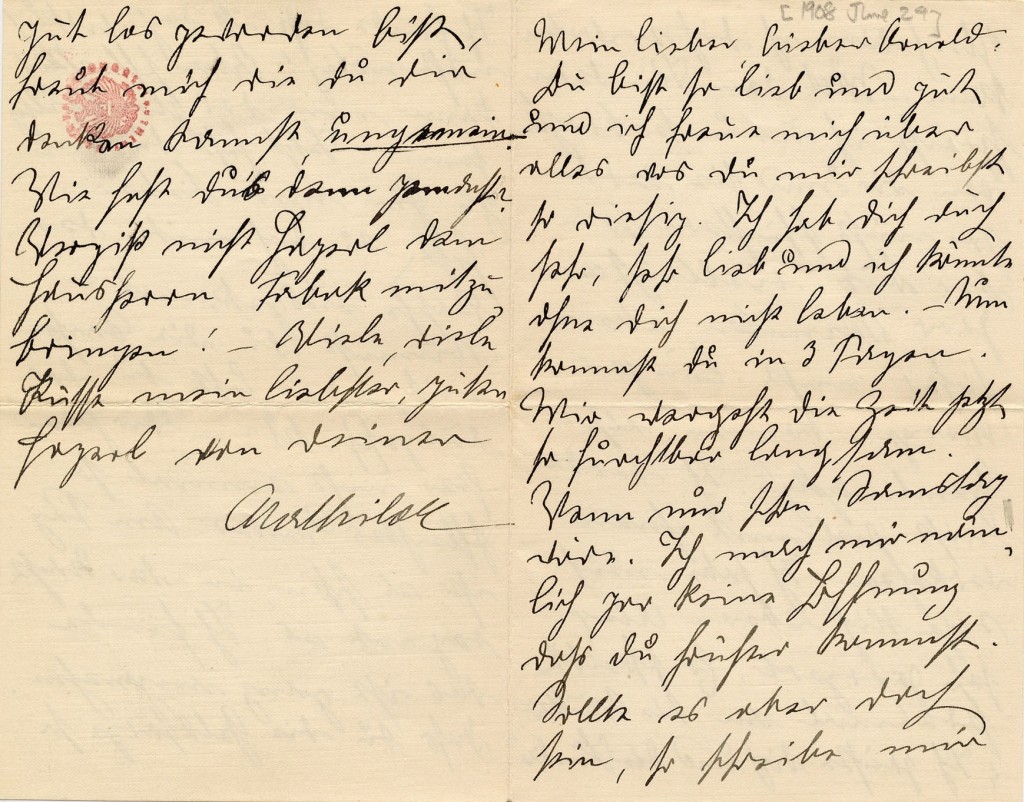 gut los geworden bist,
freut mich wie du dir
denken kannst, ungemein.
Wie hast du's denn gemacht?
Vergiß nicht dem
Hausherrn Tabak mitzu-
bringen! – Viele, viele
Küsse mein liebster, guter
von deiner
Mathilde
[1908 June 29]
Mein lieber, lieber Arnold.
Du bist so lieb und gut
und ich freue mich über
alles was du mir schreibst
so riesig. Ich hab dich auch
sehr, sehr lieb und ich könnte
ohne dich nicht leben. – Nun
kommst du in 3 Tagen.
Mir vergeht die Zeit jetzt
so furchtbar langsam.
Wenn nur schon Samstag
wäre. Ich mach mir näm-
lich gar keine Hoffnung
dass du früher kommst.
Sollte es aber doch
sein, so schreibe mir